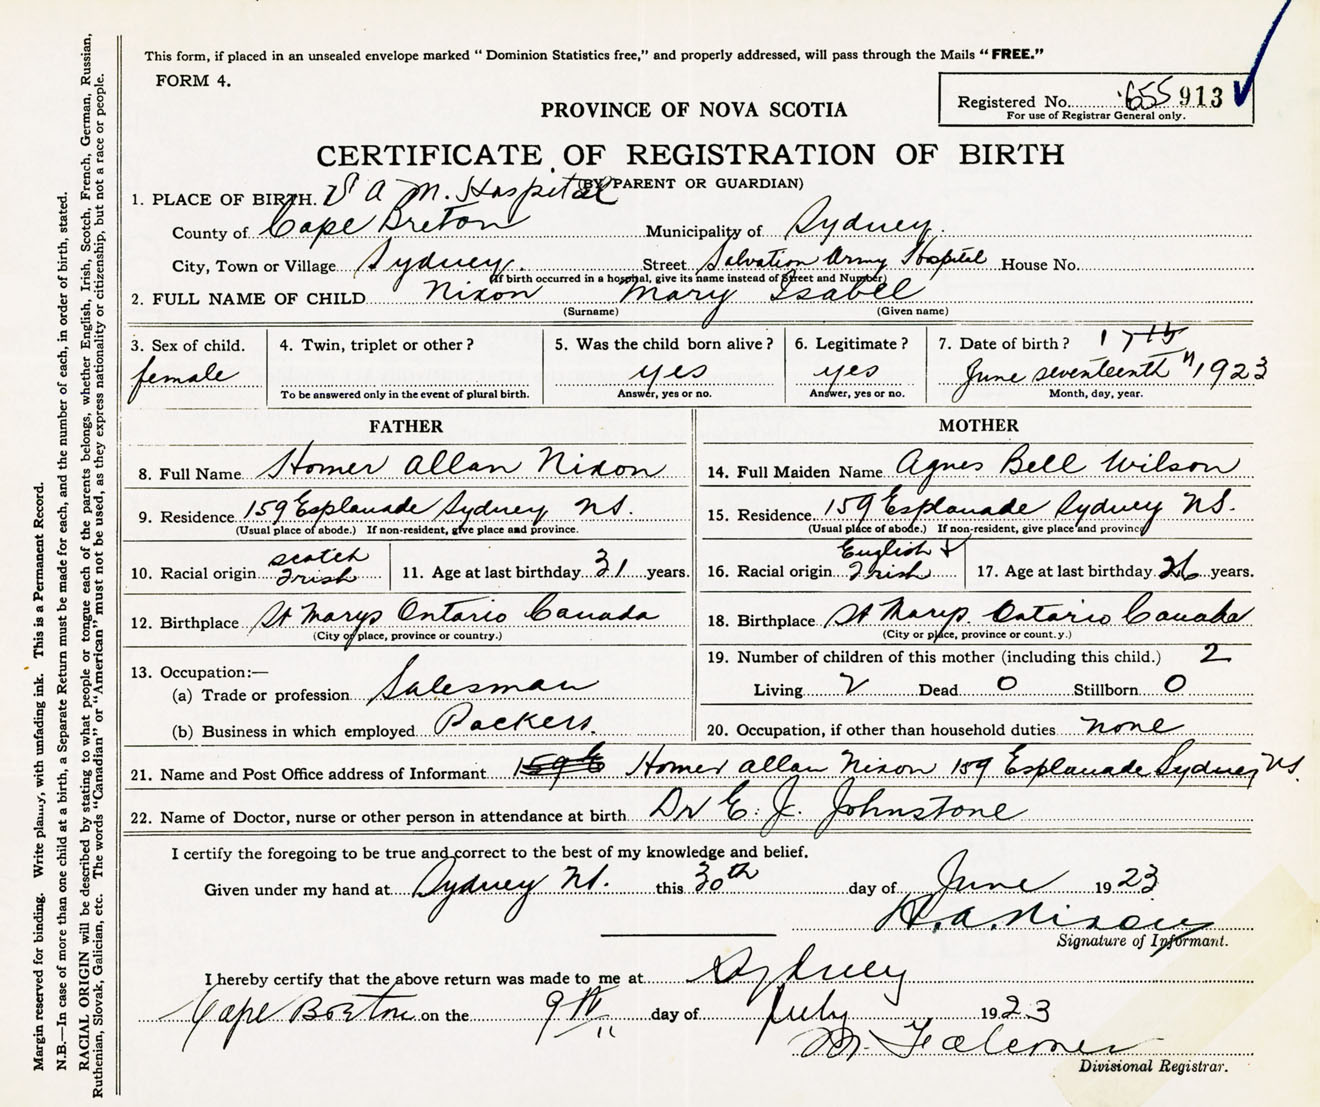 This form, if placed in an unsealed envelope marked "Dominion Statistics free," and properly addressed, will pass through the Mails "FREE."
FORM 4.
Registered No. 655 913
For use of Registrar General only.
PROVINCE OF NOVA SCOTIA
CERTIFICATE OF REGISTRATION OF BIRTH
(BY PARENT OR GUARDIAN)
1. PLACE OF BIRTH. S A M. Hospital
County of Cape Breton Municipality of Sydney.
City, Town or Village Sydney. Street Salvation Army Hospital House No.
(If birth occurred in a hospital, give its name instead of Street and Number)
2. FULL NAME OF CHILD Nixon Mary Isabel
(Surname) (Given name)
3. Sex of child. female
4. Twin, triplet or other?
To be answered only in the event of plural birth.
5. Was the child born alive? yes
Answer, yes or no.
6. Legitimate? yes
Answer, yes or no.
7. Date of birth? 17th
June seventeenth " 1923
Month, day, year.
FATHER
8. Full Name Homer Allan Nixon
9. Residence 159 Esplanade Sydney NS.
(Usual place of abode.) If non-resident, give place and province.
10. Racial origin scotch Irish 11. Age at last birthday 31 years.
12. Birthplace St Marys Ontario Canada
(City or place, province or country.)
13. Occupation:—
(a) Trade or profession Salesman
(b) Business in which employed Packers.
MOTHER
14. Full Maiden Name Agnes Bell Wilson
15. Residence 159 Esplanade Sydney NS.
(Usual place of abode.) If non-resident, give place and province
16. Racial origin English & Irish 17. Age at last birthday 26 years.
18. Birthplace St Marys. Ontario Canada
(City or place, province or count.y.)
19. Number of children of this mother (including this child.) 2
Living 2 Dead 0 Stillborn 0
20. Occupation, if other than household duties none
21. Name and Post Office address of Informant Homer Allan Nixon 159 Esplanade Sydney NS.
22. Name of Doctor, nurse or other person in attendance at birth Dr E. J. Johnstone
I certify the foregoing to be true and correct to the best of my knowledge and belief.
Given under my hand at Sydney NS. this 30th day of June 1923
H. A. Nixon
Signature of Informant.
I hereby certify that the above return was made to me at Sydney
Cape Breton on the 9th day of July 1923
M. Falconer
Divisional Registrar.
Margin reserved for binding. Write plainly, with unfading ink. This is a Permanent Record.
N.B.—In case of more than one child at a birth, a Separate Return must be made for each, and the number of each, in order of birth, stated.
RACIAL ORIGIN will be described by stating to what people or tongue each of the parents belongs, whether English, Irish, Scotch, French, German, Russian,
Ruthenian, Slovak, Galician, etc. The words "Canadian" or "American" must not be used, as they express nationality or citizenship, but not a race or people.